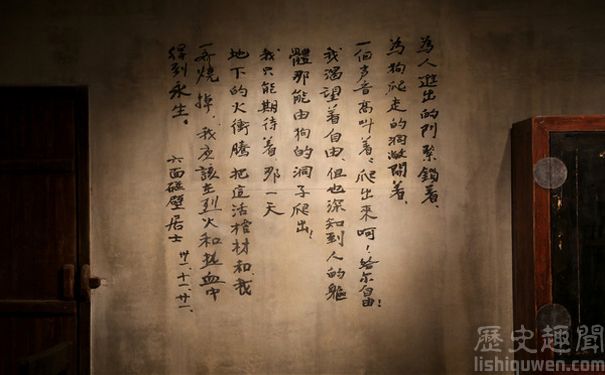 為人進出的门緊鎖着、
為狗爬走的洞敞開着、
一個声音高叫着、爬出來呵！給尔自由！
我渴望着自由、但也深知到人的軀
體那能由狗的洞子爬出！
我只能期待着、那一天
地下的火衝騰把這活棺材和我
一齐燒掉、我应該在烈火和热血中
得到永生。
六面碰壁居士
卅一.十一.廿一.
歷史趣聞
lishiquwen.com